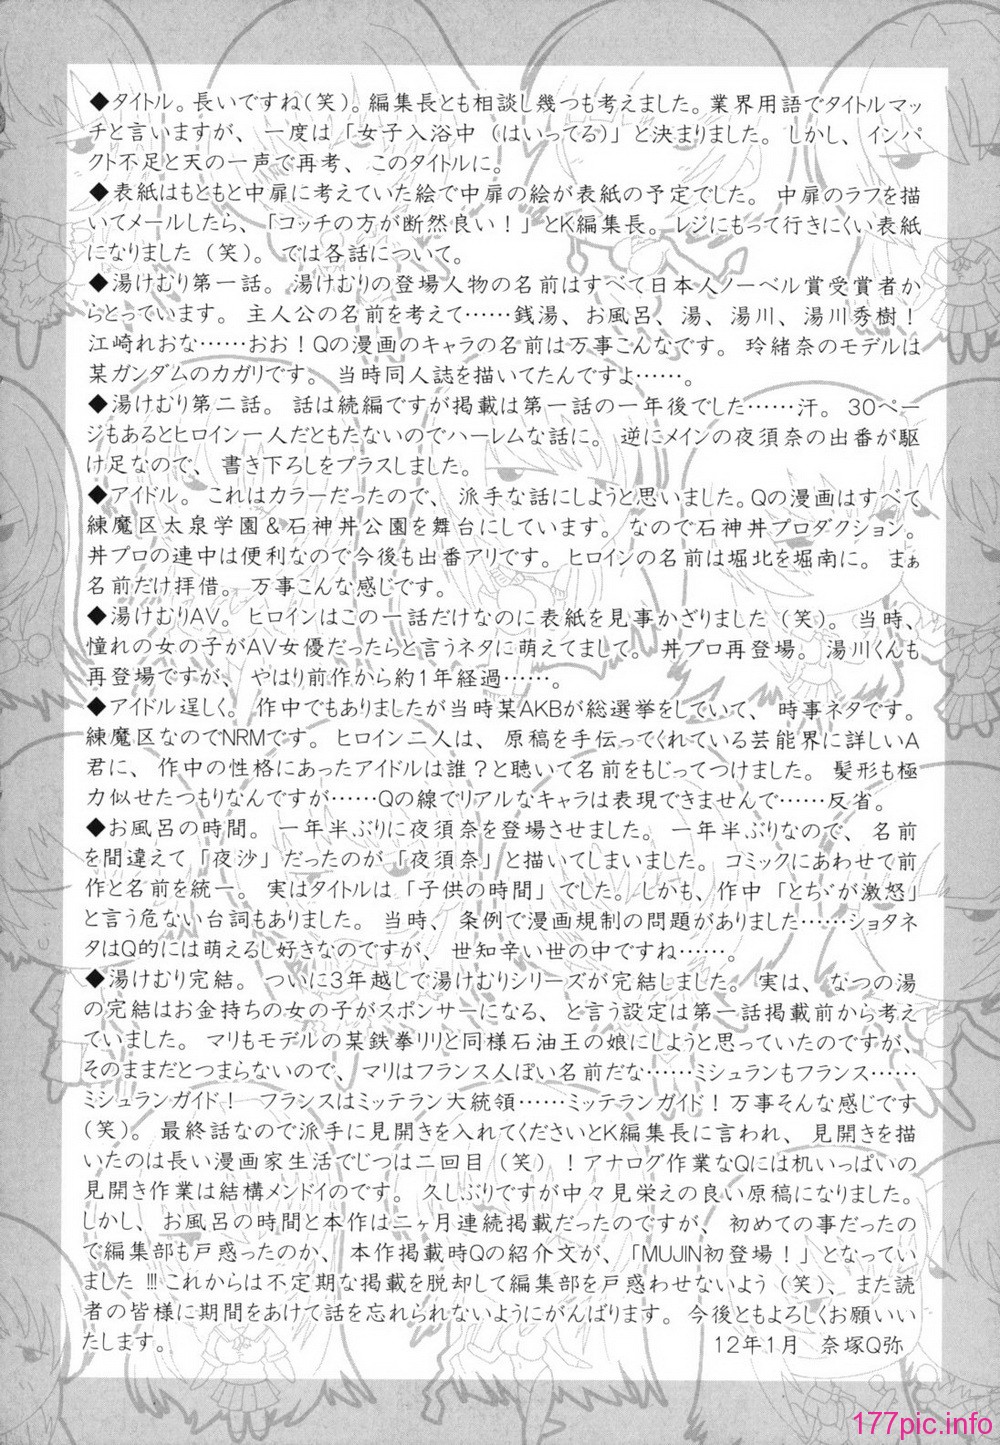 ◆タイトル。長いですね(笑)。編集長とも相談し幾つも考えました。業界用語でタイトルマッ
チと言いますが、一度は「女子入浴中（はいってる）」と決まりました。しかし、インパ
クト不足と天の一声で再考、このタイトルに。
◆表紙はもともと中扉に考えていた絵で中扉の絵が表紙の予定でした。中扉のラフを描
いてメールしたら、「コッチの方が断然良い！」とK編集長。レジにもって行きにくい表紙
になりました（笑）。では各話について。
◆湯けむり第一話。湯けむりの登場人物の名前はすべて日本人ノーベル賞受賞者か
らとっています。主人公の名前を考えて……銭湯、お風呂、湯、湯川、湯川秀樹！
江崎れおな……おお！Qの漫画のキャラの名前は万事こんなです。玲緒奈のモデルは
某ガンダムのカガリです。当時同人誌を描いてたんですよ……。
◆湯けむり第二話。話は続編ですが掲載は第一話の一年後でした……汗。30ペー
ジもあるとヒロイン一人だともたないのでハーレムな話に。逆にメインの夜須奈の出番が駆
け足なので、書き下ろしをプラスしました。
◆アイドル。これはカラーだったので、派手な話にしようと思いました。Qの漫画はすべて
練魔区太泉学園＆石神丼公園を舞台にしています。なので石神丼プロダクション。
丼プロの連中は便利なので今後も出番アリです。ヒロインの名前は堀北を堀南に。まぁ
名前だけ拝借。万事こんな感じです。
◆湯けむりAV。ヒロインはこの一話だけなのに表紙を見事かざりました（笑）。当時、
憧れの女の子がAV女優だったらと言うネタに萌えてまして。丼プロ再登場。湯川くんも
再登場ですが、やはり前作から約1年経過……。
◆アイドル逞しく。作中でもありましたが当時某AKBが総選挙をしていて、時事ネタです。
練魔区なのでNRMです。ヒロイン二人は、原稿を手伝ってくれている芸能界に詳しいA
君に、作中の性格にあったアイドルは誰？と聴いて名前をもじってつけました。髪形も極
力似せたつもりなんですが……Qの線でリアルなキャラは表現できませんで……反省。
◆お風呂の時間。一年半ぶりに夜須奈を登場させました。一年半ぶりなので、名前
を間違えて「夜沙」だったのが「夜須奈」と描いてしまいました。コミックにあわせて前
作と名前を統一。実はタイトルは「子供の時間」でした。しかも、作中「とぢが激怒」
と言う危ない台詞もありました。当時、条例で漫画規制の問題がありました……ショタネ
タはQ的には萌えるし好きなのですが、世知辛い世の中ですね……。
◆湯けむり完結。ついに3年越しで湯けむりシリーズが完結しました。実は、なつの湯
の完結はお金持ちの女の子がスポンサーになる、と言う設定は第一話掲載前から考え
ていました。マリもモデルの某鉄拳リリと同様石油王の娘にしようと思っていたのですが、
そのままだとつまらないので、マリはフランス人ぽい名前だな……ミシュランもフランス……
ミシュランガイド！ フランスはミッテラン大統領……ミッテランガイド！万事そんな感じです
（笑）。最終話なので派手に見開きを入れてくださいとK編集長に言われ、見開きを描
いたのは長い漫画家生活でじつは二回目（笑）！アナログ作業なQには机いっぱいの
見開き作業は結構メンドイのです。久しぶりですが中々見栄えの良い原稿になりました。
しかし、お風呂の時間と本作は二ヶ月連続掲載だったのですが、初めての事だったの
で編集部も戸惑ったのか、本作掲載時Qの紹介文が、「MUJIN初登場！」となってい
ました!!!これからは不定期な掲載を脱却して編集部を戸惑わせないよう（笑）、また読
者の皆様に期間をあけて話を忘れられないようにがんばります。今後ともよろしくお願いい
たします。
12年1月 奈塚Q弥
177pic.info